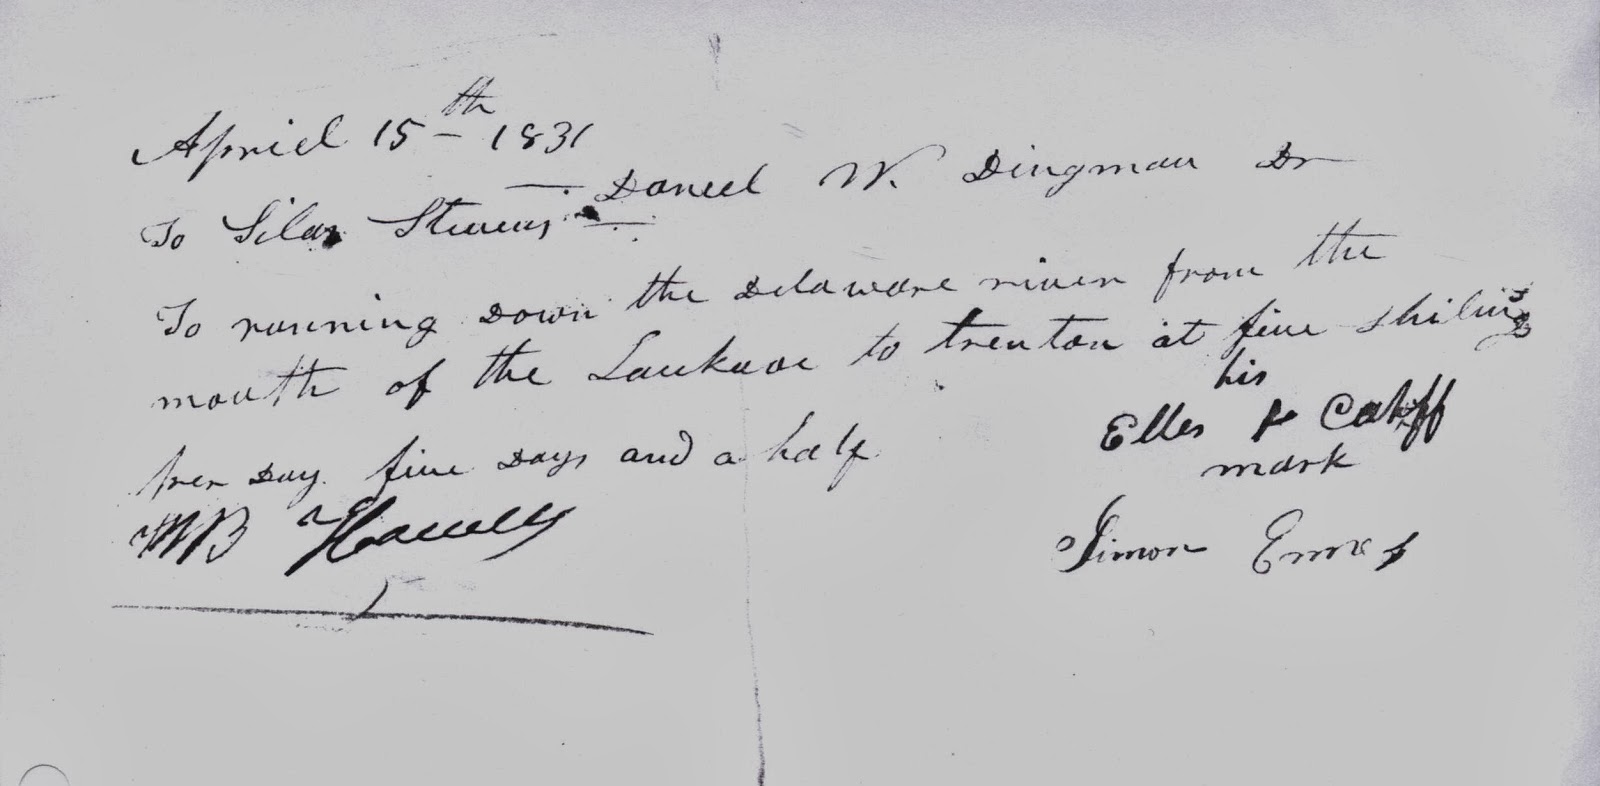 Apriel 15th 1831
Daniel W. Dingman Dr
To Silas Stevens
To running down the Delaware river from the
mouth of the Lackwac to trenton at five shilings
per Day five Days and a half
his
Elles x
mark
WB
Simon